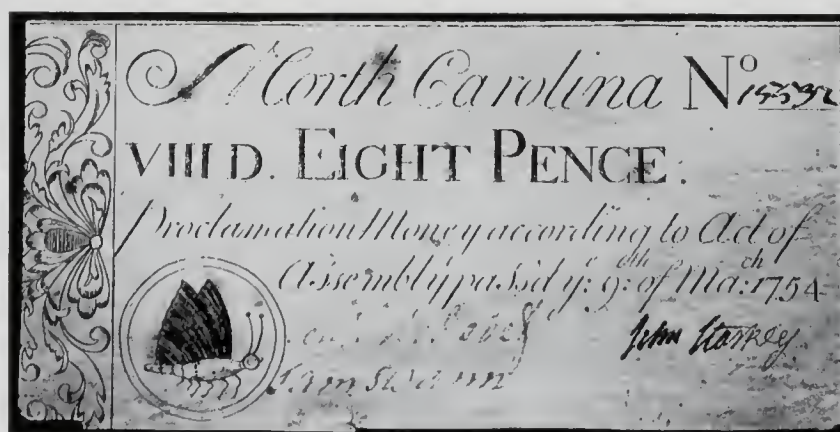 North Carolina Nº 15592
VIII D. EIGHT PENCE.
Proclamation Money according to Act of
Assembly pass'd yᵉ: 9:ᵗʰ of Ma:ᶜʰ 1754
John Starkey
Sam Swann